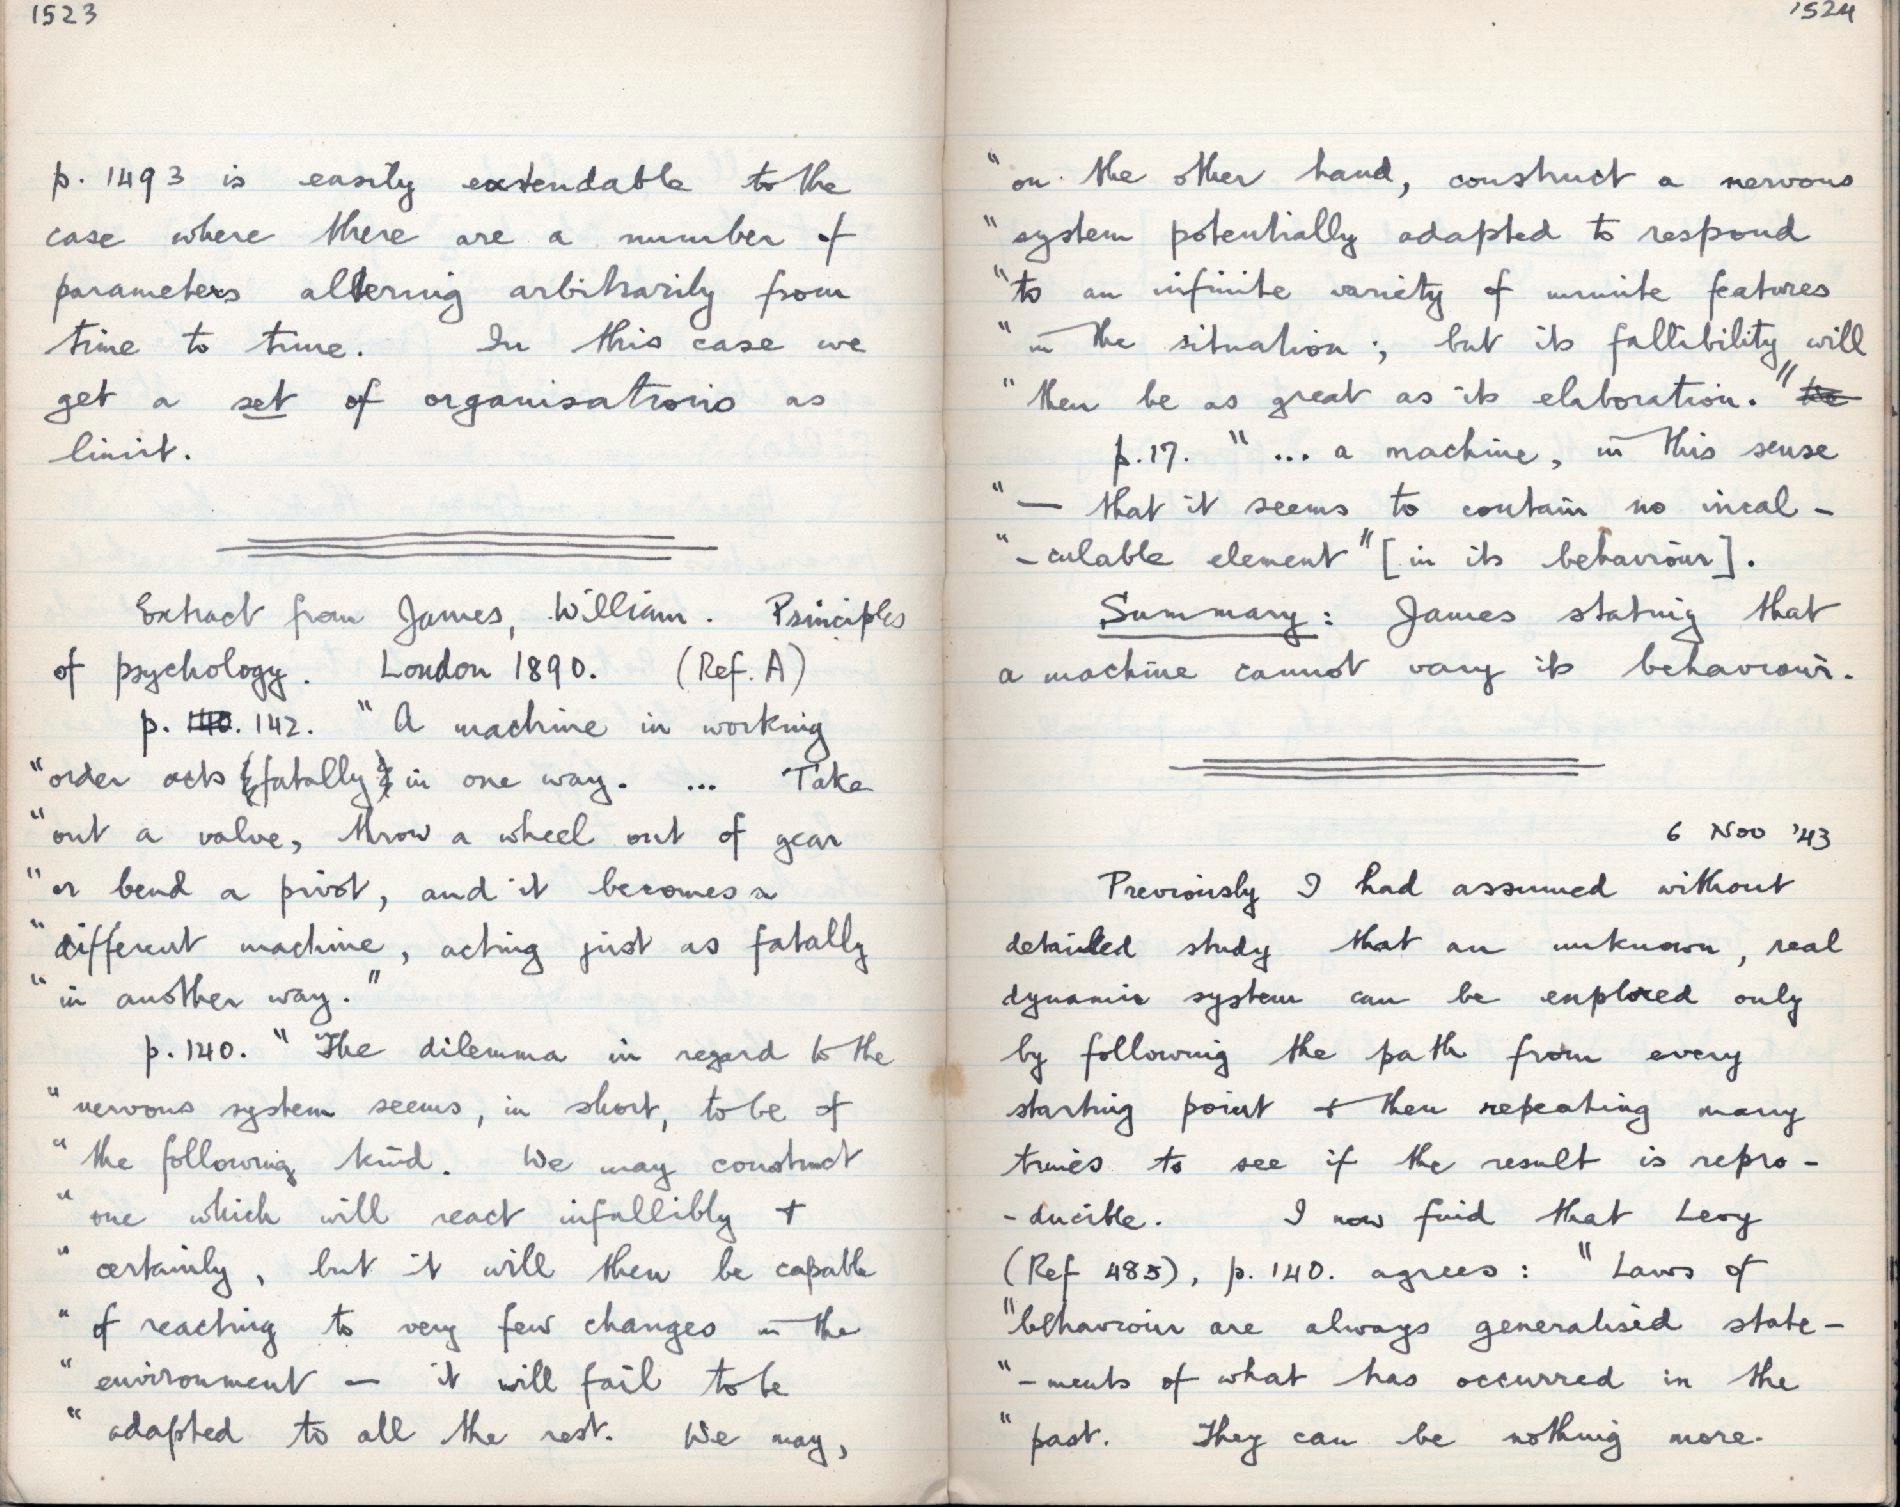 1523
p. 1493 is easily extendable to the
case where there are a number of
parameters altering arbitrarily from
time to time. In this case we
get a set of organisations as
limit.
Extract from James, William. Principles
of psychology. London 1890. (Ref. A)
p. 140. 142. "A machine in working
"order acts fatally in one way. ... Take
"out a valve, throw a wheel out of gear
"or bend a pivot, and it becomes a
"different machine, acting just as fatally
"in another way."
p. 140. "The dilemma in regard to the
"nervous system seems, in short, to be of
"the following kind. We may construct
"one which will react infallibly +
"certainly, but it will then be capable
"of reacting to very few changes in the
"environment — it will fail to be
"adapted to all the rest. We may,
1524
"on the other hand, construct a nervous
"system potentially adapted to respond
"to an infinite variety of minute features
"in the situation; but its fallibility will
"then be as great as its elaboration."
p. 17. "... a machine, in this sense
"— that it seems to contain no incal-
"-culable element" [in its behaviour].
Summary: James stating that
a machine cannot vary its behaviour.
6 Nov '43
Previously I had assumed without
detailed study that an unknown, real
dynamic system can be explored only
by following the path from every
starting point + then repeating many
times to see if the result is repro-
-ducible. I now find that Levy
(Ref 485), p. 140. agrees: "Laws of
"behaviour are always generalised state-
"-ments of what has occurred in the
"past. They can be nothing more.